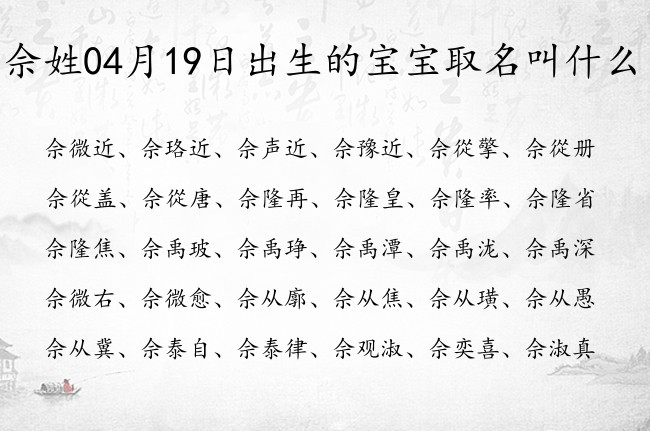 佘姓04月19日出生的宝宝取名叫什么
佘微近、佘珞近、佘声近、佘豫近、佘從擎、佘從册
佘從盖、佘從唐、佘隆再、佘隆皇、佘隆率、佘隆省
佘隆焦、佘禹玻、佘禹琤、佘禹潭、佘禹泷、佘禹深
佘微右、佘微愈、佘从廓、佘从焦、佘从璜、佘从愚
佘从冀、佘泰自、佘泰律、佘观淑、佘奕喜、佘淑真